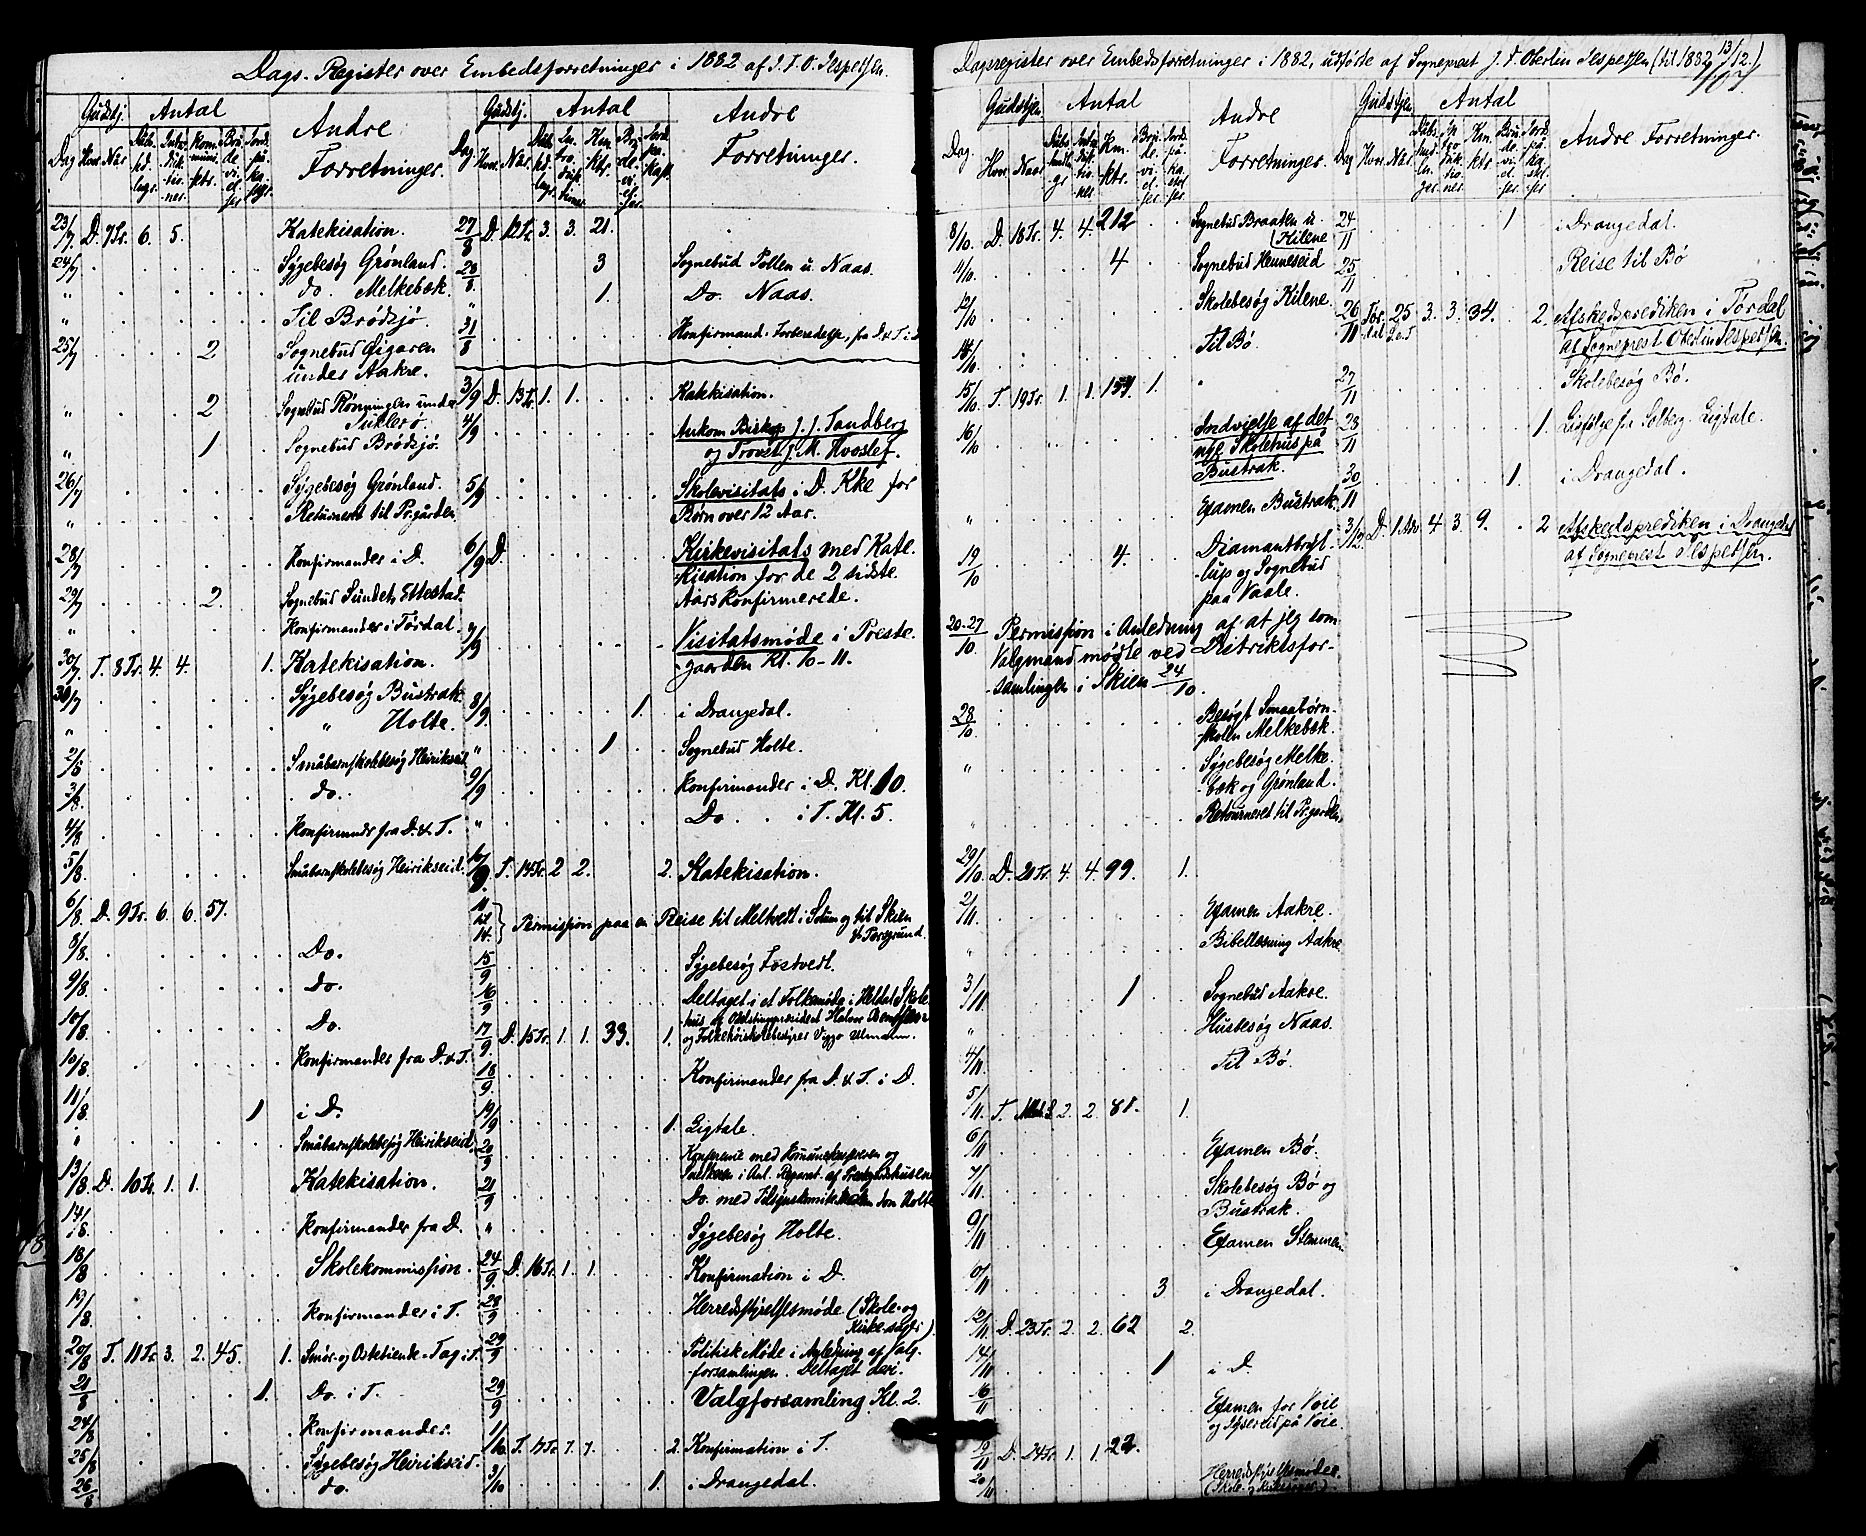 Dags-Register over Embedsforretninger i 1882 af J. F. O. Jespersen.
Gudstj. Antal Andre Forretninger.
Dag Hvor Naar
23/7 D. 7 Tr. 6. 5. Katekisation.
24/7 Sygebesøg Grønland.
" do. Melkebæk.
" Til Brødsjø.
25/7 2 Sognebud Øigaren
under Aakre.
" 2 Sognebud Rønningen under
" 1 Sognebud Brødsjø.
26/7 Sygebesøg Grønland.
" Returneret til Pr.gården
28/7 Konfirmander i D.
29/7 2. Sognebud Sundet, Ettestad.
" Konfirmander i Tørdal.
30/7 T. 8 Tr. 4. 4. 1. Katekisation.
Sygebesøg Bustrak
" " Holte.
2/8 Småbarnskolebesøg Heirikseid
3/8. do.
4/8 Konfirmander fra D. & T.
5/8. Småbarnskolebesøg Heirikseid.
6/8. D. 9 Tr. 6. 6. 57.
8/8. Do.
9/8. Do.
10/8. Do.
10/8. Konfirmander fra D. & T.
11/8. 1 i D.
" Småbarnskolebesøg Heirikseid
13/8 D. 10 Tr. 1. 1. Katekisation.
14/8 Konfirmander fra D.
18/8 Skolekommission.
19/8 Konfirmander i T.
20/8 T. 11 Tr. 3. 2. 45. 1. Smør- og Ostetiende-Tag i T.
21/8 1. Do. i T.
24/8 Konfirmander
25/8 Sygebesøg Heirikseid.
26/8 do.
Gudstj. Antal Andre Forretninger.
Dag Hvor. Når.
27/8 D. 12 Tr. 3. 3. 21.
28/8 3 Sognebud Pollen u. Naas.
" 1. Do. Naas.
31/8 Konfirmand-Forberedelse, fra D. & T. i D.
3/9 D. 13 Tr. 1. 1. Katekisation.
4/9 Ankom Biskop J. J. Tandberg
og Provst J. M. Kvoslef.
5/9 Skolevisitats i D. Kke for
Børn over 12 Aar.
6/9 D. Kirkevisitats med Kate-
kisation for de 2 sidste
Aars konfirmerede.
7/9 Visitatsmøde i Preste-
gaarden Kl. 10-11.
8/9 1. i Drangedal.
" 1 Sognebud Holte.
9/9 Konfirmander i D. Kl. 10.
" Do. i T. Kl. 5.
10/9. T. 14 Tr. 2 2. 2. Katekisation.
Permission paa en Reise til Meltvedt i Solum og til Skien
& Porsgrund.
15/9 Sygebesøg Tostvedt.
16/9 Deltaget i et Folkemøde i Heldal Skole-
hus
17/9. D. 15 Tr. 1. 1. 33. 1. og Folkehøiskolebestyrer Viggo Ullmann.
18/9. Konfirmander fra D. & T. i D.
19/9 1. Ligtale.
20/9
21/9
" Sygebesøg Holte.
24/9. D. 16 Tr. 1. 1. Konfirmation i D.
28/9 Herredsstyrelsesmøde (Skole- og
Kirke-sager)
29/9 Politisk Møde i Anledning af Valg-
forsamlingen. Deltaget deri.
29/9 Valgforsamling Kl. 2.
1/10 T. 17 Tr. 7. 7. 2. Konfirmation i T.
3/10 1. i Drangedal.
Dagsregister over Embedsforretninger i 1882, udførte af Sogneprest J. F. Oberlin Jespersen (til 13/12 1882.)
107.
Gudstjen Antal Andre Forretninger.
Dag. Hvor Naar
8/10. D. 18 Tr. 4. 4. 212 Sognebud Braaten u.
Kilene
11/10. 4 Sognebud Henneseid
12/10 Skolebesøg Kilene.
14/10 Til Bø.
15/10 T. 19 Tr. 1. 1. 1. "
16/10 Indvielse af det
nye Skolehus på
Bustrak.
" Examen Bustrak.
19/10 4. Diamantbryl-
lup og Sognebud
paa Vaale.
20-27/10. Permission i Anledning af at jeg som
Valgmand mødte ved Distriktsfor-
samlingen i Skien 24/10.
28/10 Besøgt Smaabørn-
skolen Melkebæk.
" Sygebesøg Melke-
bæk og Grønland.
" Retourneret til Pr.gården
29/10 D. 20 Tr. 4. 4. 99. 1.
2/11 Examen Aakre.
" Bibellæsning Aakre
3/11 1 Sognebud Aakre.
" Husbesøg Naas.
4/11 Til Bø.
5/11 T. 2. 2. 81. 1.
6/11 Examen Bø.
7/11 Skolebesøg Bø og
Bustrak.
9/11 Examen Stemmen
3 i Drangedal.
12/11 D. 23 Tr. 2. 2. 62 2.
14/11 1 i D.
16/11 Examen for Voie
på Voie.
19/11 D. 24 Tr. 1. 1. 22.
20/11 Herredsstyrelsesmøde.
Gudstjen Antal Andre Forretninger.
Dag Hvor. Når.
24/11 1 i Drangedal.
25/11 Reise til Bø
26/11 Tør-dal 25 3. 3. 34. 2. Afskedsprediken i Tørdal
af Sogneprest Oberlin Jespersen.
27/11 Skolebesøg Bø.
28/11 1. Ligfølge fra Solberg. Ligtale.
30/11 1. i Drangedal.
3/12. D. 1. Adv. 4 3 9. 2 Afskedsprediken i Drangedal
af Sogneprest Jespersen.